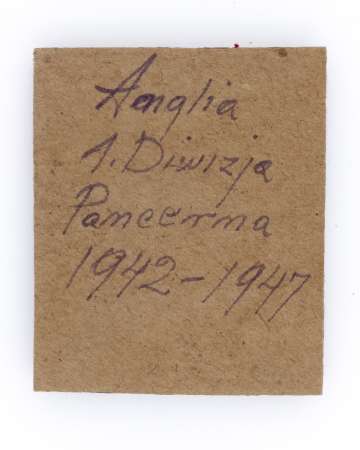 Anglia
1. Diwizja
Pancerna
1942-1947